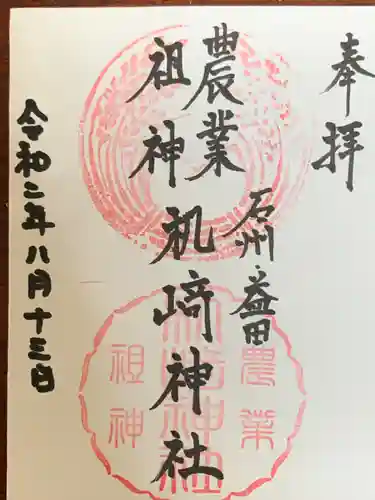 奉拝
石州益田
農業
祖神
机崎神社
令和二年八月十三日
農業
机崎神社
祖神